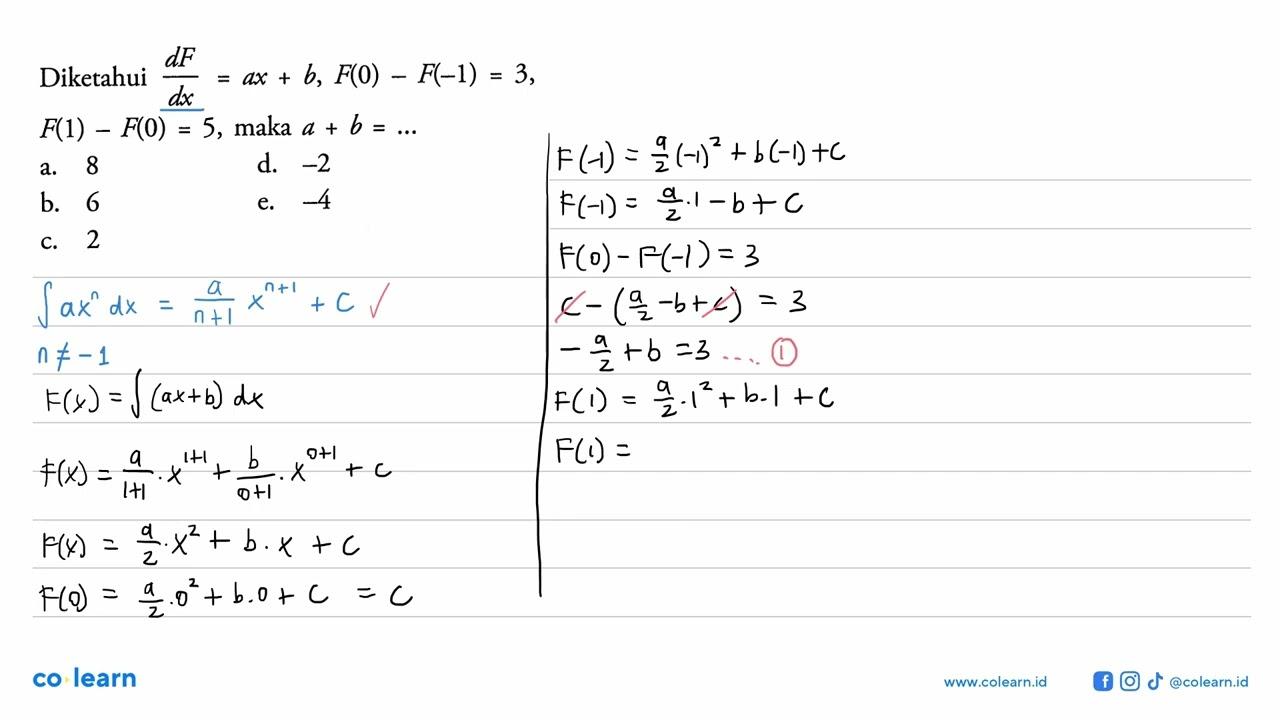 Diketahui dF/dx = ax + b, F(0) – F(–1) = 3,
F(1) – F(0) = 5, maka a + b = ...
a. 8 d. –2
b. 6 e. –4
c. 2
∫ axⁿ dx = a/(n+1) xⁿ⁺¹ + C ✓
n ≠ -1
F(x) = ∫ (ax+b) dx
F(x) = a/(1+1) · x¹⁺¹ + b/(0+1) · x⁰⁺¹ + C
F(x) = a/2 · x² + b · x + C
F(0) = a/2 · 0² + b · 0 + C = C
F(-1) = a/2 (-1)² + b(-1) + C
F(-1) = a/2 · 1 - b + C
F(0) - F(-1) = 3
C - (a/2 - b + C) = 3
- a/2 + b = 3 .... ①
F(1) = a/2 · 1² + b · 1 + C
F(1) =
co learn
www.colearn.id
@colearn.id